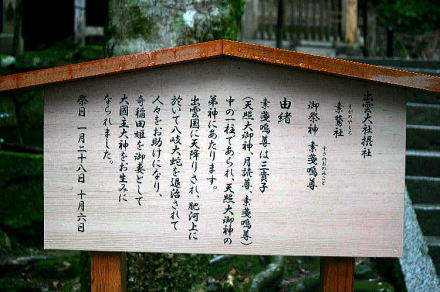 出雲大社摂社
そがのやしろ
素鵞社
すさのおのみこと
御祭神 素戔嗚尊
由緒
素戔嗚尊は三貴子
（天照大御神、月読尊、素戔嗚尊）
中の一柱であられ、天照大御神の
弟神にあたります。
出雲国に天降りされ、肥河上に
於いて八岐大蛇を退治されて
人々をお助けになり、
奇稲田姫を御妻として
大国主大神をお生みに
なられました。
祭日 一月二十八日、十月六日